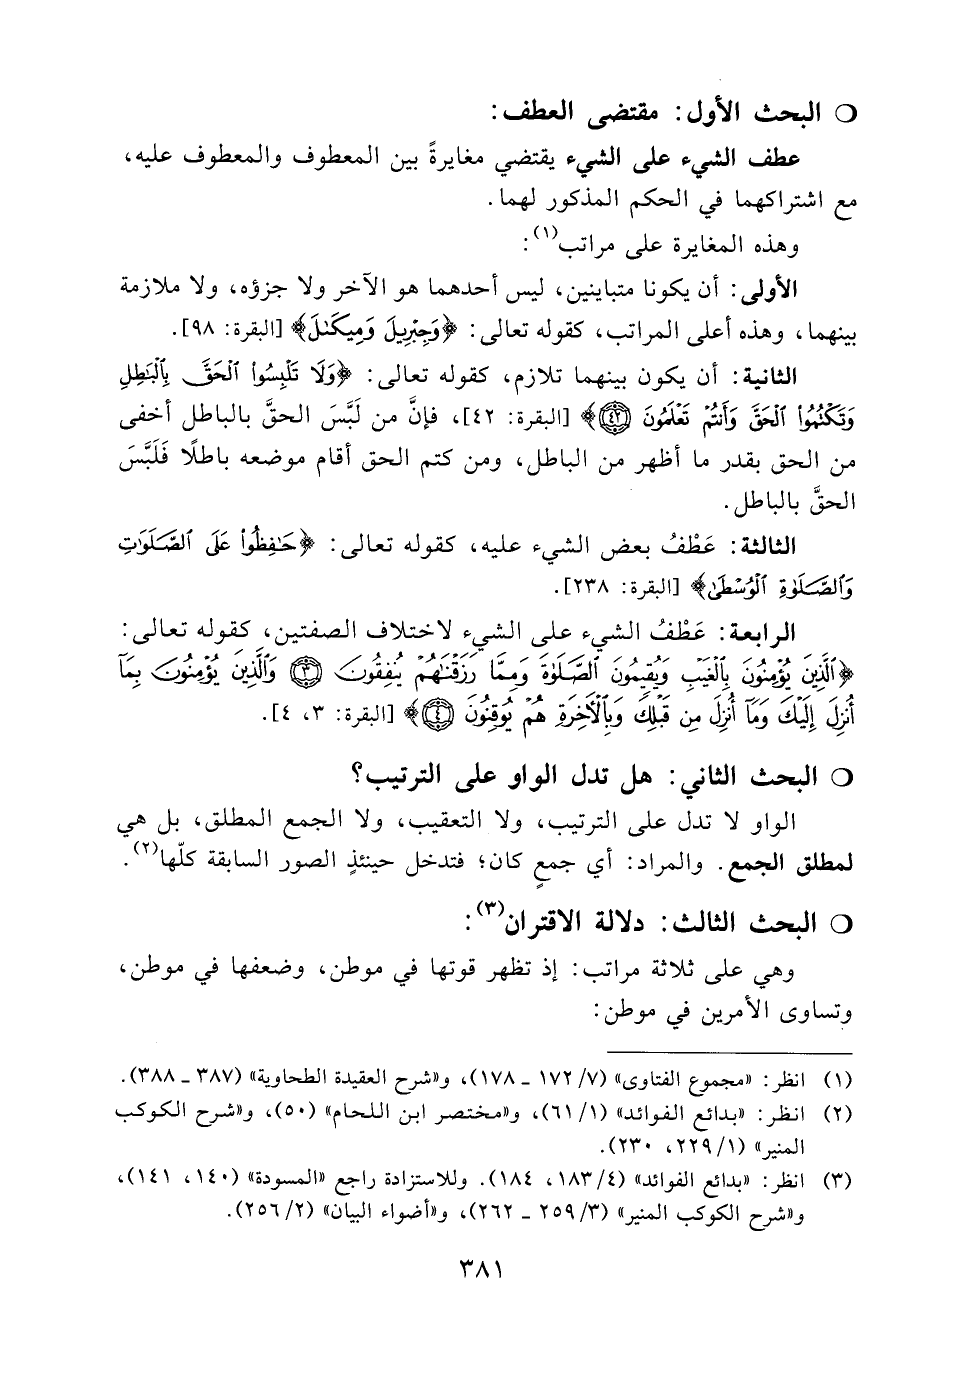 ○ البحث الأول: مقتضى العطف:
عطف الشيء على الشيء يقتضي مغايرةً بين المعطوف والمعطوف عليه،
مع اشتراكهما في الحكم المذكور لهما.
وهذه المغايرة على مراتب(١):
الأولى: أن يكونا متباينين، ليس أحدهما هو الآخر ولا جزؤه، ولا ملازمة
بينهما، وهذه أعلى المراتب، كقوله تعالى: ﴿وَجِبْرِيلَ وَمِيكَىٰلَ﴾ [البقرة: ٩٨].
الثانية: أن يكون بينهما تلازم، كقوله تعالى: ﴿وَلَا تَلْبِسُوا۟ ٱلْحَقَّ بِٱلْبَٰطِلِ
وَتَكْتُمُوا۟ ٱلْحَقَّ وَأَنتُمْ تَعْلَمُونَ ٤٢﴾ [البقرة: ٤٢]، فإنَّ من لَبَّسَ الحقَّ بالباطل أخفى
من الحق بقدر ما أظهر من الباطل، ومن كتم الحق أقام موضعه باطلًا فَلَبَّسَ
الحقَّ بالباطل.
الثالثة: عَطْفُ بعض الشيء عليه، كقوله تعالى: ﴿حَٰفِظُوا۟ عَلَى ٱلصَّلَوَٰتِ
وَٱلصَّلَوٰةِ ٱلْوُسْطَىٰ﴾ [البقرة: ٢٣٨].
الرابعة: عَطْفُ الشيء على الشيء لاختلاف الصفتين، كقوله تعالى:
﴿ٱلَّذِينَ يُؤْمِنُونَ بِٱلْغَيْبِ وَيُقِيمُونَ ٱلصَّلَوٰةَ وَمِمَّا رَزَقْنَٰهُمْ يُنفِقُونَ ٣ وَٱلَّذِينَ يُؤْمِنُونَ بِمَآ
أُنزِلَ إِلَيْكَ وَمَآ أُنزِلَ مِن قَبْلِكَ وَبِٱلْأَخِرَةِ هُمْ يُوقِنُونَ ٤﴾ [البقرة: ٣، ٤].
○ البحث الثاني: هل تدل الواو على الترتيب؟
الواو لا تدل على الترتيب، ولا التعقيب، ولا الجمع المطلق، بل هي
لمطلق الجمع. والمراد: أي جمعٍ كان؛ فتدخل حينئذٍ الصور السابقة كلّها(٢).
○ البحث الثالث: دلالة الاقتران(٣):
وهي على ثلاثة مراتب: إذ تظهر قوتها في موطن، وضعفها في موطن،
وتساوى الأمرين في موطن:
(١) انظر: «مجموع الفتاوى» (٧/ ١٧٢ ـ ١٧٨)، و«شرح العقيدة الطحاوية» (٣٨٧ ـ ٣٨٨).
(٢) انظر: «بدائع الفوائد» (١/ ٦١)، و«مختصر ابن اللحام» (٥٠)، و«شرح الكوكب
المنير» (١/ ٢٢٩، ٢٣٠).
(٣) انظر: «بدائع الفوائد» (٤/ ١٨٣، ١٨٤). وللاستزادة راجع «المسودة» (١٤٠، ١٤١)،
و«شرح الكوكب المنير» (٣/ ٢٥٩ ـ ٢٦٢)، و«أضواء البيان» (٢/ ٢٥٦).
٣٨١